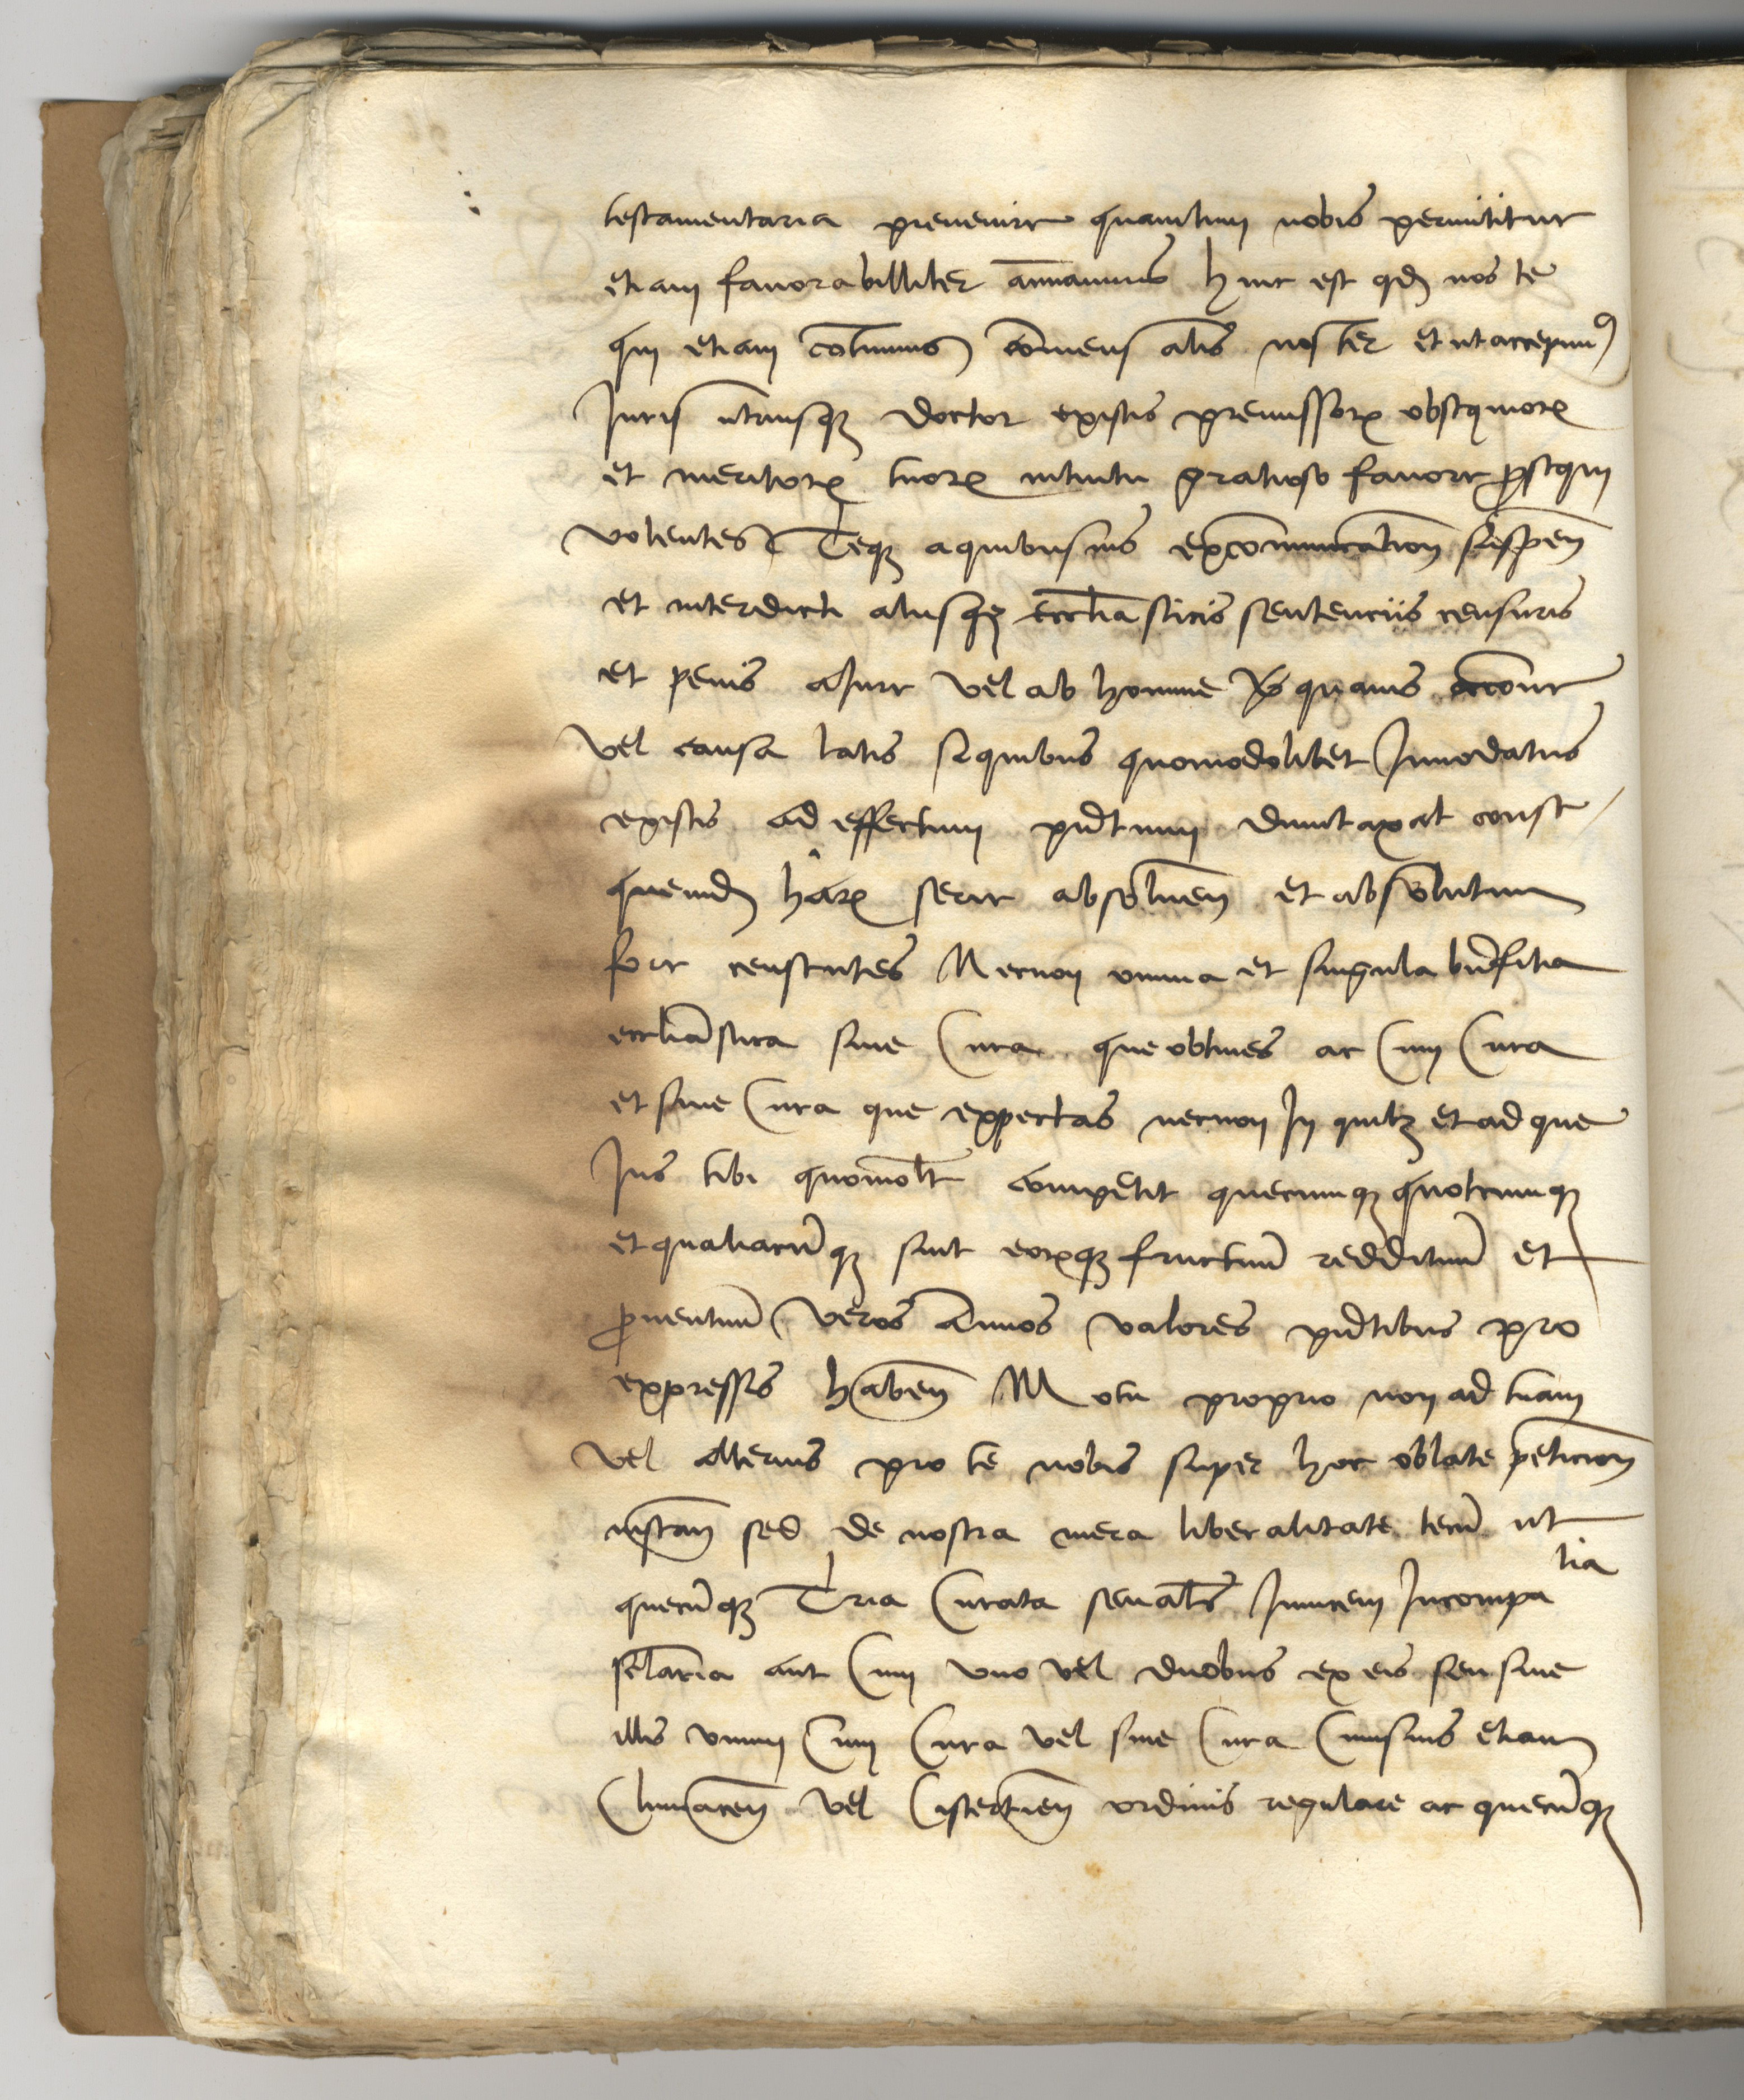 testamentaria prevenire quantum nobis permittitur
etiam favorabilliter annuimus hinc est qd nos te
qui etiam continuus comensalis noster et ut accepimus
Juris utriusq doctor existis premissor obsequior
et meritor tuor intuitu gratioso favore prosequi
volentes Teq a quibusvis excommunication suspen
et interdicti aliisq eccliasticis sentenciis censuris
et penis a Jure vel ab homine quavis occone
vel causa latis si quibus quomodolibet Innodatus
existis ad effectum pntium duntaxat conse
quendu har serie absolven et absolutum
fore censentes Necnon omnia et singula bnfitia
eccliastica sine Cura que obtines ac Cum Cura
et sine Cura que expectas necnon In quib et ad que
Jus tibi quomolt competit quecunq quotcunq
et qualiacuq sint eorq fructuu reddituu et
proventuu veros Annos valores pntibus pro
expressis haben Motu proprio non ad tuam
vel alterius pro te nobis super hoc oblate peticion
instan sed de nostra mera liberalitate tecu ut
quecuq Tria Curata seu als Invicem Incompa tia
selaria aut Cum uno vel duobus ex eis seu sine
illis unum Cum Cura vel sine Cura Cuiusvis etiam
Cluniacen vel Cistertien ordinis regulare ac quecuq